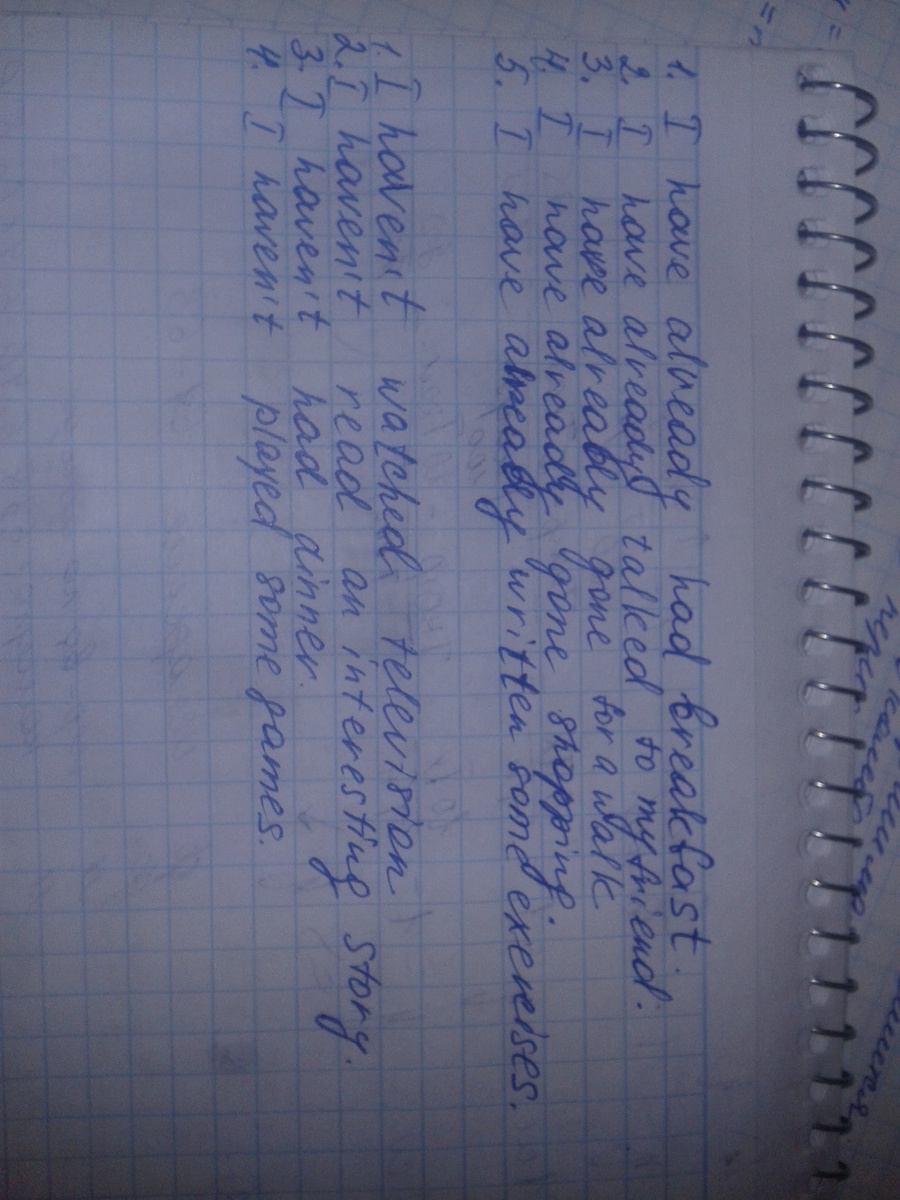 1. I have already had breakfast.
2. I have already talked to my friend.
3. I have alreably gone for a walk
4. I have already gone shopping.
5. I have alreably writen some exercises.
1. I haven't watched television
2. I haven't read an interesting story.
3. I haven't had dinner.
4. I haven't played some games.